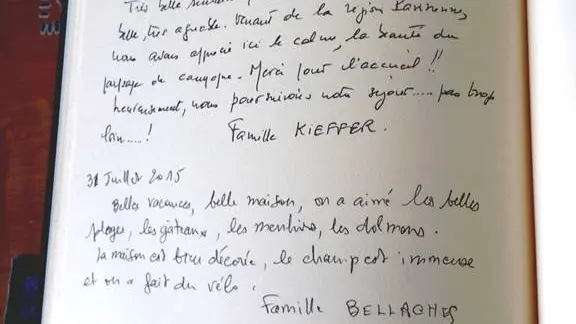 Très belle
belle, très agréable. Venant de la région Parisienne,
nous avons apprécié ici le calme, la beauté du
paysage de campagne. Merci pour l'accueil !!
heureusement, nous poursuivons notre séjour..... pas trop
loin.....!
Famille KIEFFER.
31 Juillet 2015
Belles vacances, belle maison, on a aimé les belles
plages, les gâteaux, les menhirs, les dolmens.
La maison est bien décorée, le champ est immense
et on a fait du vélo.
Famille BELLACHES